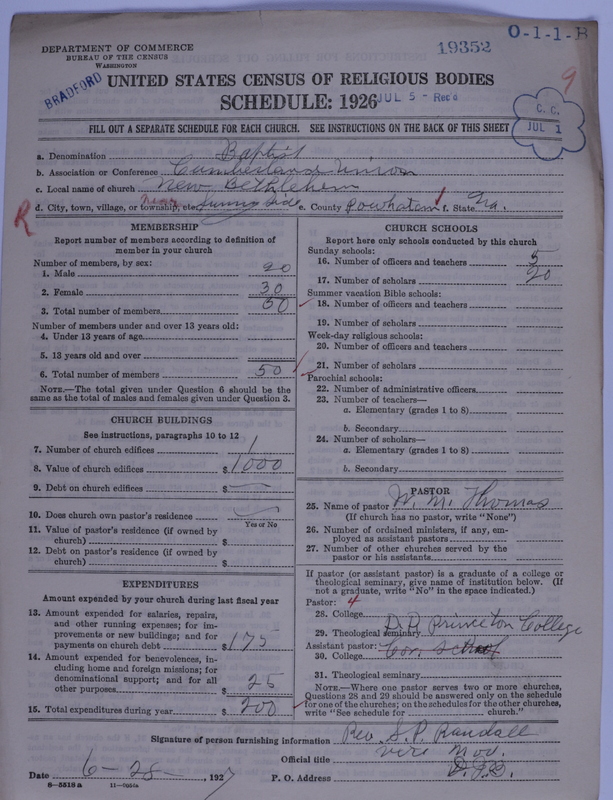 DEPARTMENT OF COMMERCE
BUREAU OF THE CENSUS
WASHINGTON
BRADFORD
19352
O-1-1-B
9
UNITED STATES CENSUS OF RELIGIOUS BODIES
SCHEDULE: 1926
JUL 5 - Rec'd
C. C.
JUL 1
FILL OUT A SEPARATE SCHEDULE FOR EACH CHURCH. SEE INSTRUCTIONS ON THE BACK OF THIS SHEET
a. Denomination Baptist
b. Association or Conference Cumberland Union
c. Local name of church New Bethlehem
d. City, town, village, or township, etc. near Sunny Side e. County Powhatan f. State Va.
R
MEMBERSHIP
Report number of members according to definition of
member in your church
Number of members, by sex:
1. Male 20
2. Female 30
3. Total number of members 50
Number of members under and over 13 years old:
4. Under 13 years of age
5. 13 years old and over
6. Total number of members 50
NOTE.—The total given under Question 6 should be
same as the total of males and females given under Question 3.
CHURCH BUILDINGS
See instructions, paragraphs 10 to 12
7. Number of church edifices 1
8. Value of church edifices $1000
9. Debt on church edifices $
10. Does church own pastor's residence
Yes or No
11. Value of pastor's residence (if owned by
church) $
12. Debt on pastor's residence (if owned by
church) $
EXPENDITURES
Amount expended by your church during last fiscal year
13. Amount expended for salaries, repairs,
and other running expenses; for im-
provements or new buildings; and for
payments on church debt $175
14. Amount expended for benevolences, in-
cluding home and foreign missions; for
denominational support; and for all
other purposes $ 25
15. Total expenditures during year $200
CHURCH SCHOOLS
Report here only schools conducted by this church
Sunday schools:
16. Number of officers and teachers 5
17. Number of scholars 20
Summer vacation Bible schools:
18. Number of officers and teachers
19. Number of scholars
Week-day religious schools:
20. Number of officers and teachers
21. Number of scholars
Parochial schools:
22. Number of administrative officers
23. Number of teachers—
a. Elementary (grades 1 to 8)
b. Secondary
24. Number of scholars—
a. Elementary (grades 1 to 8)
b. Secondary
PASTOR
25. Name of pastor W. M. Thomas
(If church has no pastor, write "None")
26. Number of ordained ministers, if any, em-
ployed as assistant pastors
27. Number of other churches served by the
pastor or his assistants
If pastor (or assistant pastor) is a graduate of a college or
theological seminary, give name of institution below. (If
not a graduate, write "No" in the space indicated.)
Pastor: 4
28. College
29. Theological seminary D.D. Princeton College
Assistant pastor:
30. College
31. Theological seminary
NOTE.—Where one pastor serves two or more churches,
Questions 28 and 29 should be answered only on the schedule
for one of the churches; on the schedules for the other churches,
write "See schedule for church."
Signature of person furnishing information Rev. S. P. Randall
Official title Vice Mod.
Date 6-28-, 1927 P. O. Address
8-5518a 11-9054a